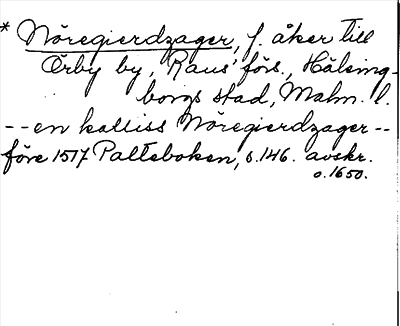 * Nöregierdzager, f. åker till
Örby by, Raus' förs., Hälsing-
borgs stad, Malm. l.
-- en kalliss Nöregierdzager --
före 1517 Palteboken, s. 146. avskr.
o. 1650.